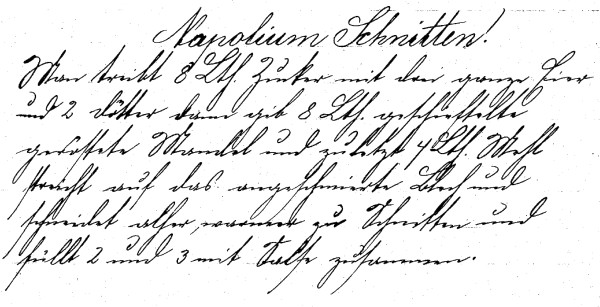 Napolium Schnitten!
Man treibt 8 Lth. Zucker mit drei ganze Eier
und 2 Dötter dann gib 8 Lth. geschiftelte
geröstete Mandel und zuletzt 4 Lth. Mehl
streicht auf das angeschmierte Blech und
schneidet alser, warmer zu Schnitten und
füllt 2 und 3 mit Salse zusammen.